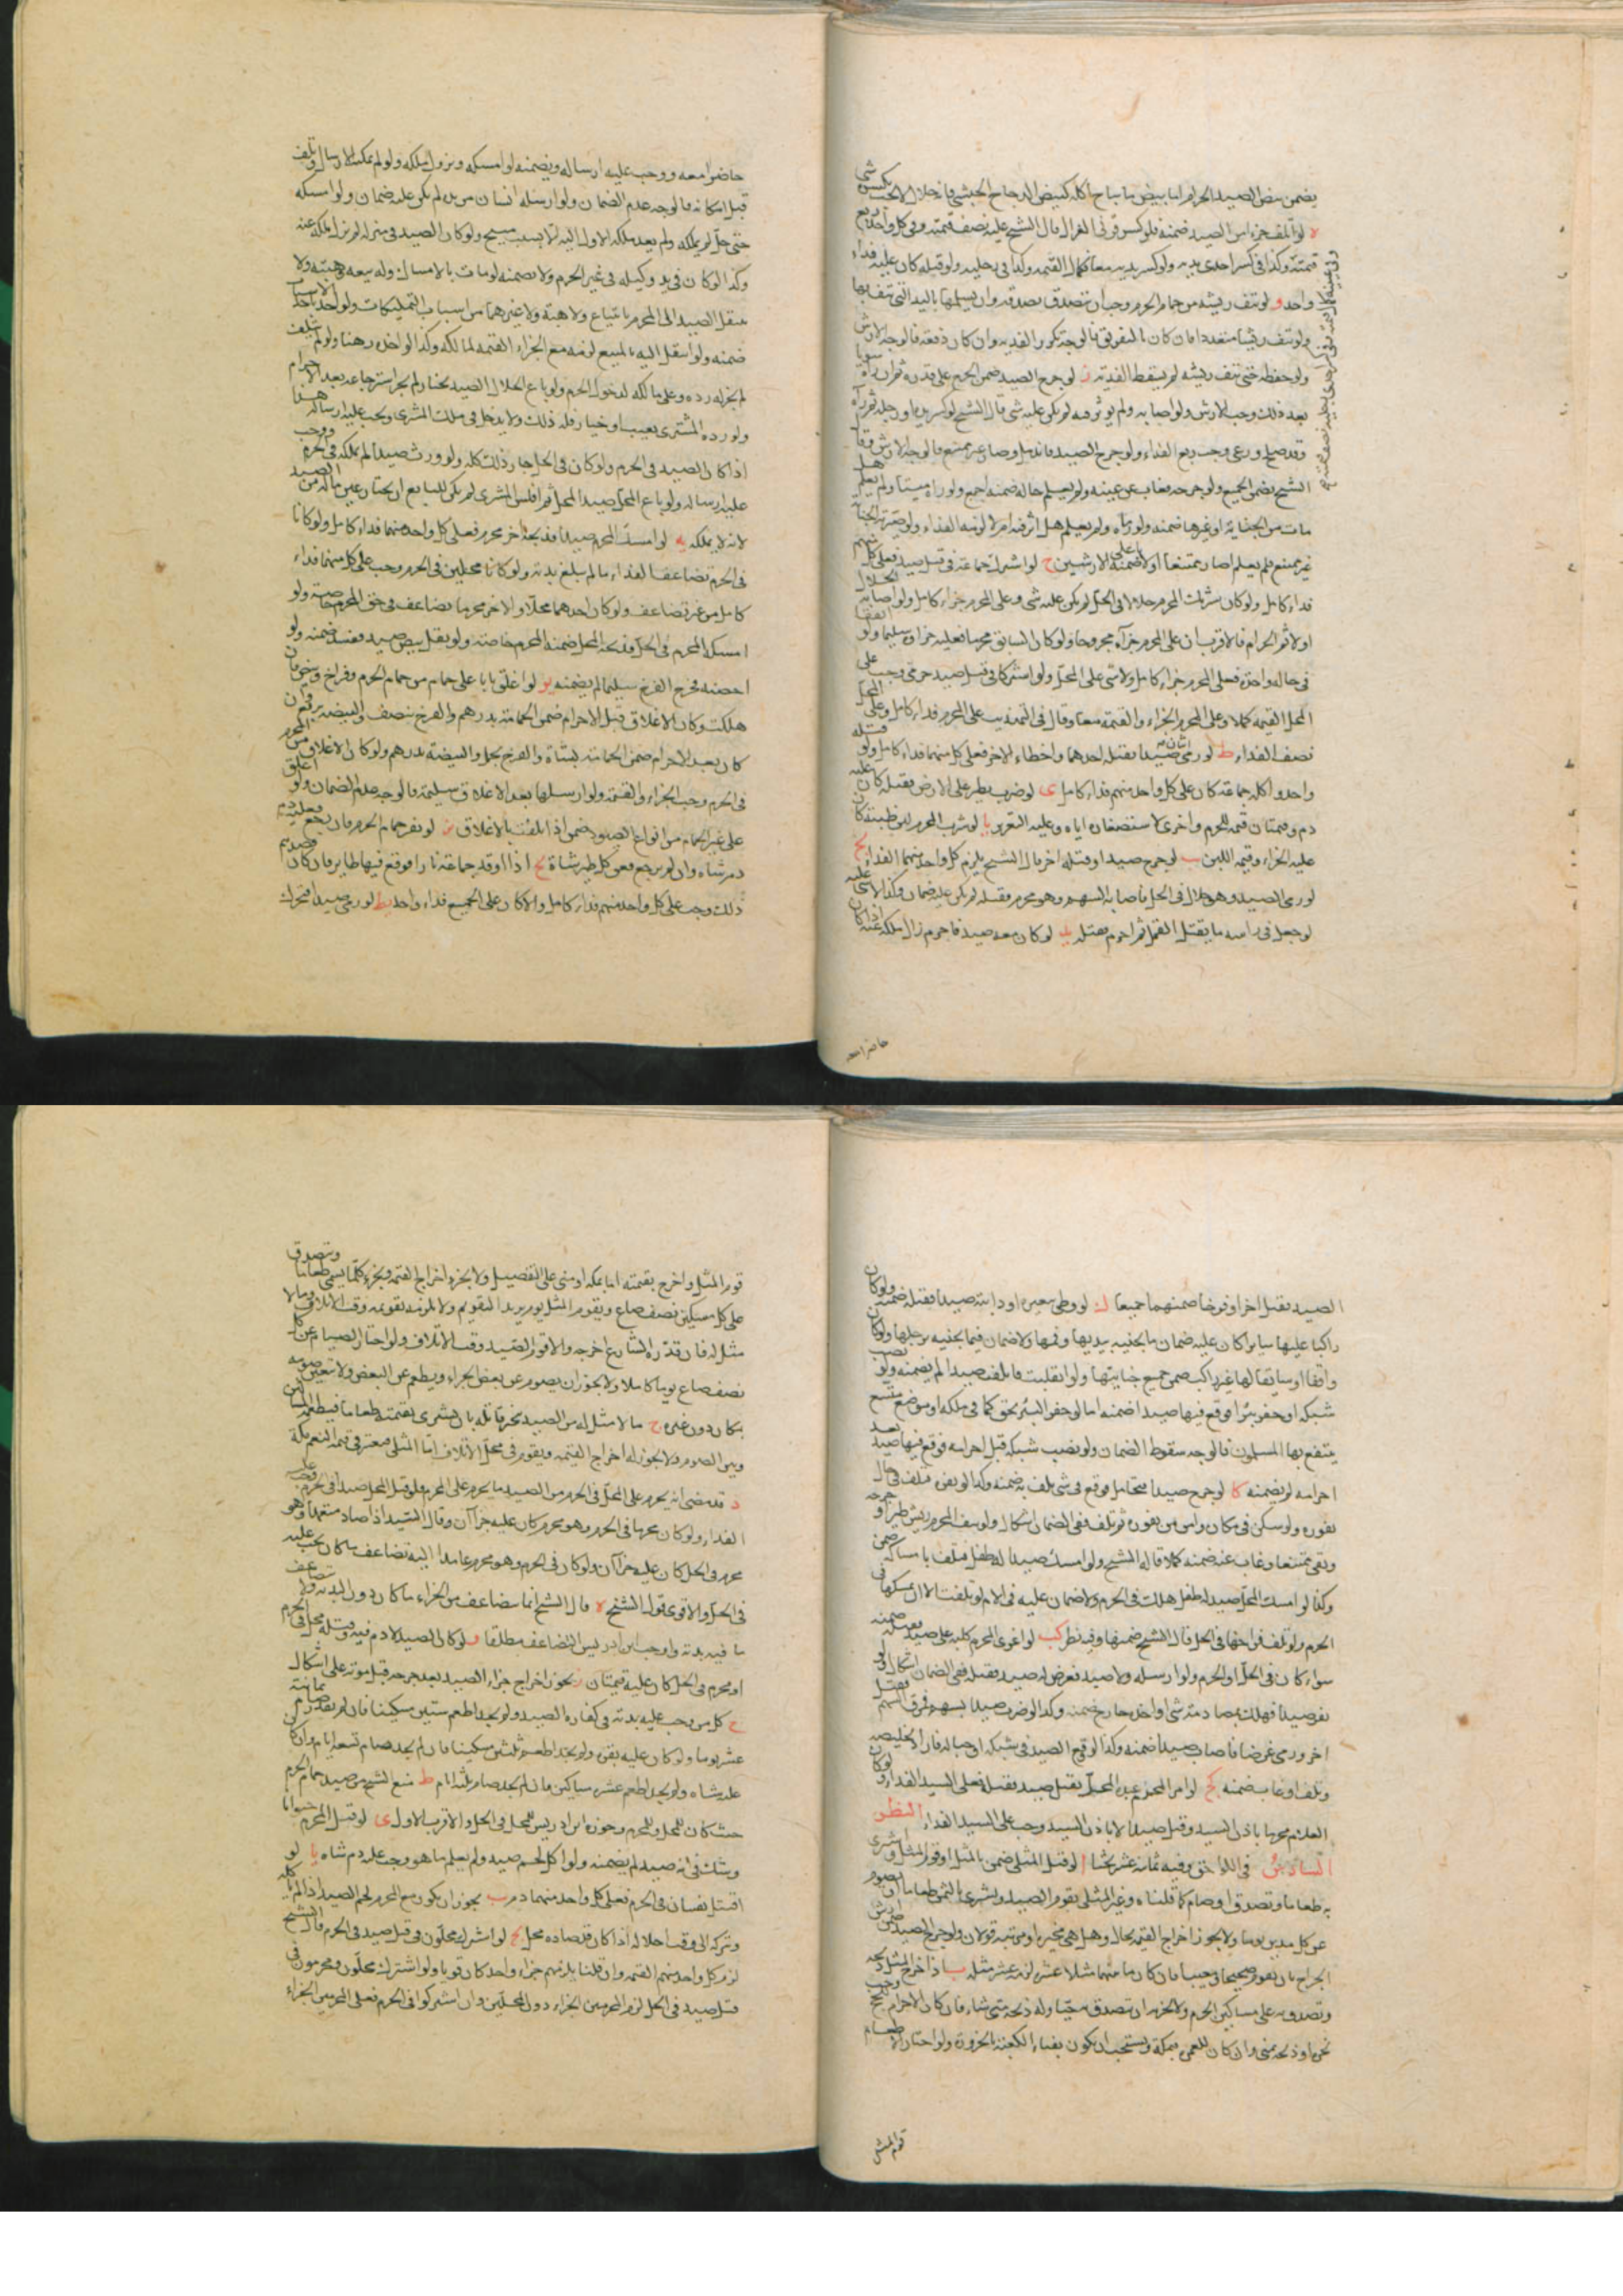 يضمن بيض الصيد الحرام اما بيض ما يباح اكله كبيض الدجاج الحبشي فانه حلال لا يجب بكسره شي
ه لو اتلف جزءا من الصيد ضمنه فلو كسر قرني الغزال قال الشيخ عليه نصف قيمته وفي كل واحد ربع
قيمته وكذا في كسر احدى يديه ولو كسر يديه معا كمال القيمة وكذا في رجليه ولو قتله كان عليه فداء
واحد و لو نتف ريشة من حمام الحرم وجب ان يتصدق بصدقه وان يسلمها باليد التي نتف بها
ولو نتف ريشا متعددا فان كان بالتفريق فالوجه تكرر الفديه وان كان دفعة فالوجه الارش
ولو حفظه حتى نبت ريشه لم يسقط الفدية ز لو جرح الصيد ضمن الجرح على قدره ثم ان رآه سويا
بعد ذلك وجب الارش ولو اصابه ولم يوثر فيه لم يكن عليه شي قال الشيخ لو كسر يده او رجله ثم رآه
وقد صلح ورعى وجب ربع الفداء ولو جرح الصيد فاندمل وصار غير ممتنع فالوجه الارش وقال
الشيخ يضمن الجميع ولو جرحه فغاب عن عينه ولم يعلم حاله ضمنه اجمع ولو رآه ميتا ولم يعلم هل
مات من الجناية او غيرها ضمنه ولو رآه ولم يعلم هل اثر فيه ام لا لزمه الفداء ولو صيرته الجناية
غير ممتنع فلم يعلم اصار ممتنعا ام لا ضمنه باعلى الارشين ح لو اشترك جماعة في قتل صيد فعلى كل منهم
فداء كامل ولو كان شريك المحرم حلالا في الحل لم يكن عليه شي وعلى المحرم جزاء كامل ولو اصابه الحلال
اولا ثم الحرام فالاقرب ان على المحرم جزاه مجروحا ولو كان السابق محرما فعليه جزاؤه سليما ولو اتفقا
في حاله واحدة فعلى المحرم جزاء كامل ولا شي على المحل ولو اشتركا في قتل صيد حرمي وجب على
المحل القيمه كملا وعلى المحرم الجزاء والقيمة معا وقال في التهذيب على المحرم فداء كامل وعلى المحل
نصف الفداء ط لو رمى اثنان صيدا فقتله احدهما واخطاء الاخر فعلى كل منهما فداء كامل ولو قتله
واحد واكله جماعة كان على كل واحد منهم فداء كامل ى لو ضرب بطير على الارض فقتله كان عليه
دم وقيمتان قيمه للحرم واخرى لاستصغاره اياه وعليه التعزير يا لو شرب المحرم لبن ظبية كان
عليه الجزاء وقيمه اللبن يب لو جرح صيدا وقتله اخر قال الشيخ يلزم كل واحد منهما الفداء يج
لو رمى الصيد وهو حلال في الحل فاصابه السهم وهو محرم فقتله لم يكن عليه ضمان وكذا لا شي عليه
لو جعل في راسه ما يقتل القمل ثم احرم فقتله يد لو كان معه صيد فاحرم زال ملكه عنه اذا كان
حاضرا معه
حاضرا معه ووجب عليه ارساله ويضمنه لو امسكه ويزول ملكه ولو لم يمكنه الارسال وتلف
قبل امكانه فالوجه عدم الضمان ولو ارسله انسان من يده لم يكن عليه ضمان ولو امسكه
حتى حل لم يملكه ولم يعد ملكه الاول اليه الا بسبب مبيح ولو كان الصيد في منزله لم يزل ملكه عنه
وكذا لو كان في يد وكيله في غير الحرم ولا يضمنه لو مات بالامساك وله بيعه وهبته ولا
ينتقل الصيد الى المحرم بابتياع ولا هبة ولا غيرهما من اسباب التمليكات ولو اخذ باحد الاسباب
ضمنه ولو انتقل اليه بالمبيع لزمه مع الجزاء القيمه لمالكه وكذا لو اخذه رهنا ولو لم يتلف
لم يجز له رده وعلى مالكه لدخول الحرم ولو باع الحلال الصيد بخيار لم يجز استرجاعه بعد الاحرام
ولو رده المشتري بعيب او خيار فله ذلك ولا يدخل في ملك المشتري ويجب عليه ارساله هذا
اذا كان الصيد في الحرم ولو كان في الحل جاز ذلك كله ولو ورث صيدا لم يملكه في الحرم ووجب
عليه ارساله ولو باع المحل صيدا لمحل ثم افلس المشتري لم يكن للبايع ان يختار عين ماله من الصيد
لانه لا يملكه يه لو امسك المحرم صيدا فذبحه اخر محرم فعلى كل واحد منهما فداء كامل ولو كانا
في الحرم تضاعف الفداء ما لم يبلغ بدنة ولو كانا محلين في الحرم وجب على كل منهما فداء
كامل من غير تضاعف ولو كان احدهما محلا والاخر محرما تضاعف في حق المحرم خاصة ولو
امسكه المحرم في الحل فذبحه المحل ضمنه المحرم خاصة ولو نقل بيض صيد ففسد ضمنه ولو
احضنه فخرج الفرخ سليما لم يضمنه يو لو اغلق بابا على حمام من حمام الحرم وفراخ وبيض فان
هلكت وكان الاغلاق قبل الاحرام ضمن الحمامة بدرهم والفرخ بنصف والبيضه بربع وان
كان بعد الاحرام ضمن الحمامة بشاة والفرخ بحمل والبيضة بدرهم ولو كان الاغلاق من المحرم
في الحرم وجب الجزاء والقيمة ولو ارسلها بعد الاغلاق سليمة فالوجه عدم الضمان ولو اغلق
على غير الحمام من انواع الصيود ضمن اذا تلفت بالاغلاق يز لو نفر حمام الحرم فان رجع فعليه
دم شاه وان لم يرجع فعن كل طير شاة يح اذا اوقد جماعة نارا فوقع فيها طاير فان كان قصدهم
ذلك وجب على كل واحد منهم فداء كامل والا كان على الجميع فداء واحد يط لو رمى صيدا فتحرك
الصيد فقتل اخر او فرخا ضمنهما جميعا ك لو وطى ببعيره او دابته صيدا فقتله ضمنه ولو كان
راكبا عليها سايرا كان عليه ضمان ما يجنيه بيديها وفمها ولا ضمان فيما يجنيه برجلها ولو كان
واقفا او سايقا لها غير راكب ضمن جميع جنايتها ولو انقلبت فاتلفت صيدا لم يضمنه ولو نصب
شبكه او حفر بئرا فوقع فيها صيد ضمنه اما لو حفر البئر بحق كما في ملكه او موضع متسع
ينتفع بها المسلمون فالوجه سقوط الضمان ولو نصب شبكة قبل احرامه فوقع فيها صيد بعد
احرامه لم يضمنه كا لو جرح صيدا فتحامل فوقع في شي تلف به ضمنه وكذا لو نفره فتلف في حال
نفوره ولو سكن في مكان وامن من نفوره ثم تلف ففي الضمان اشكال ولو نتف المحرم ريش طير او جرحه
وبقي ممتنعا وغاب عنه ضمنه كملا قاله الشيخ ولو امسك صيدا له طفل فتلف بامساكه ضمن
وكذا لو امسك المحل صيدا له طفل هلك في الحرم ولا ضمان عليه في الام لو تلفت الا ان يمسكها في
الحرم ولو تلف فراخها في الحل قال الشيخ ضمنها وفيه نظر كب لو اغرى المحرم كلبه على صيد فقتله ضمنه
سواء كان في الحل او الحرم ولو ارسله ولا صيد فعرض له صيد فقتله ففي الضمان اشكال ولو
نفر صيدا فهلك بمصادمة شي او اخذ جارح ضمنه وكذا لو ضرب صيدا بسهم فمرق السهم فقتل
اخر ورمى غرضا فاصاب صيدا ضمنه وكذا لو وقع الصيد في شبكه او حباله فاراد تخليصه
وتلف او عاب ضمنه كج لو امر المحرم عبده المحل بقتل صيد فقتله فعلى السيد الفداء ولو كان
الغلام محرما باذن السيد وقتل صيدا لا باذن السيد وجب على السيد الفداء النظر
السادس في اللواحق وفيه ثمانية عشر بحثا ا لو قتل المثلي ضمن بالمثل او قوم المثل واشترى
به طعاما وتصدق او صام كما قلناه وغير المثلي يقوم الصيد ويشتري بالثمن طعاما او يصوم
عن كل مدين يوما ولا يجوز اخراج القيمه بحال وهل هي مخيره او مرتبة قولان ولو جرح الصيد ضمن ارش
الجراح بان يقوم صحيحا ومعيبا فان كان ما بينهما مثلا عشره لزمه عشر مثله ب اذا اخرج المثل ذبحه
وتصدق به على مساكين الحرم ولا يجزيه ان يتصدق به حيا وله ذبحه متى شاء فان كان الاحرام للحج وجب
نحره او ذبحه بمنى وان كان للعمره بمكة ويستحب ان يكون بفناء الكعبة بالحزورة ولو اختار الاطعام
قوم المثل
قوم المثل واخرج بقيمته اما بمكه او منى على التفصيل ولا يجزيه اخراج القيمه ويجزي كلما يسمى طعاما ويتصدق
على كل مسكين نصف صاع ويقوم المثل يوم يريد التقويم ولا يلزمه تقويمه وقت الاتلاف وما لا
مثل له فان قدره الشارع اخرجه والا قوم الصيد وقت الاتلاف ولو اختار الصيام صام عن كل
نصف صاع يوما كاملا ولا يجوز ان يصوم عن بعض الجزاء ويطعم عن البعض ولا يتعين صومه
بمكان دون غيره ج ما لا مثل له من الصيد تخير قاتله بان يشتري بقيمته طعاما فيطعمه المساكين
وبين الصوم ولا يجوز له اخراج القيمه ويقوم في محل الاتلاف اما المثلي فيعتبر في قيمه النعم بمكة
د قد مضى انه يحرم على المحل في الحرم من الصيد ما يحرم على المحرم فلو قتل المحل صيدا في الحرم فعليه
الفداء ولو كان محرما في الحرم وهو محرم كان عليه جزاآن وقال السيد اذا صاد متعمدا وهو
محرم في الحل كان عليه جزاآن ولو كان في الحرم وهو محرم عامدا اليه تضاعف ما كان يجب عليه
في الحل والاقوى قول الشيخ ه قال الشيخ انما يتضاعف من الجزاء ما كان دون البدنه ولا يتضاعف
ما فيه بدنه واوجب ابن ادريس التضاعف مطلقا و لو كان الصيد لا دم فيه وقتله محل في الحرم
او محرم في الحل كان عليه قيمتان ز يجوز اخراج جزاء الصيد بعد جرحه قبل موته على اشكال
ح كل من وجب عليه بدنه في كفاره الصيد ولم يجد اطعم ستين مسكينا فان لم يقدر صام ثمانية
عشر يوما ولو كان عليه بقره ولم يجد اطعم ثلثين مسكينا فان لم يجد صام تسعة ايام وان كان
عليه شاه ولم يجد اطعم عشره مساكين فان لم يجد صام ثلثه ايام ط منع الشيخ من صيد حمام الحرم
حيث كان للمحل والمحرم وجوزه ابن ادريس للمحل في الحل والاقرب الاول ى لو قتل المحرم حيوانا
وشك في انه صيد لم يضمنه ولو اكل لحم صيد ولم يعلم ما هو وجب عليه دم شاه يا لو
اقتتل نفسان في الحرم فعلى كل واحد منهما دم يب يجوز ان يكون مع المحرم لحم الصيد اذا لم ياكله
وتركه الى وقت احلاله اذا كان قد صاده محل يج لو اشترك محلون في قتل صيد في الحرم قال الشيخ
لزم كل واحد منهم القيمه وان قلنا يلزمهم جزاء واحد كان قويا ولو اشترك محلون ومحرمون في
قتل صيد في الحل لزم المحرمين الجزاء دون المحلين وان اشتركوا في الحرم فعلى المحرمين الجزاء